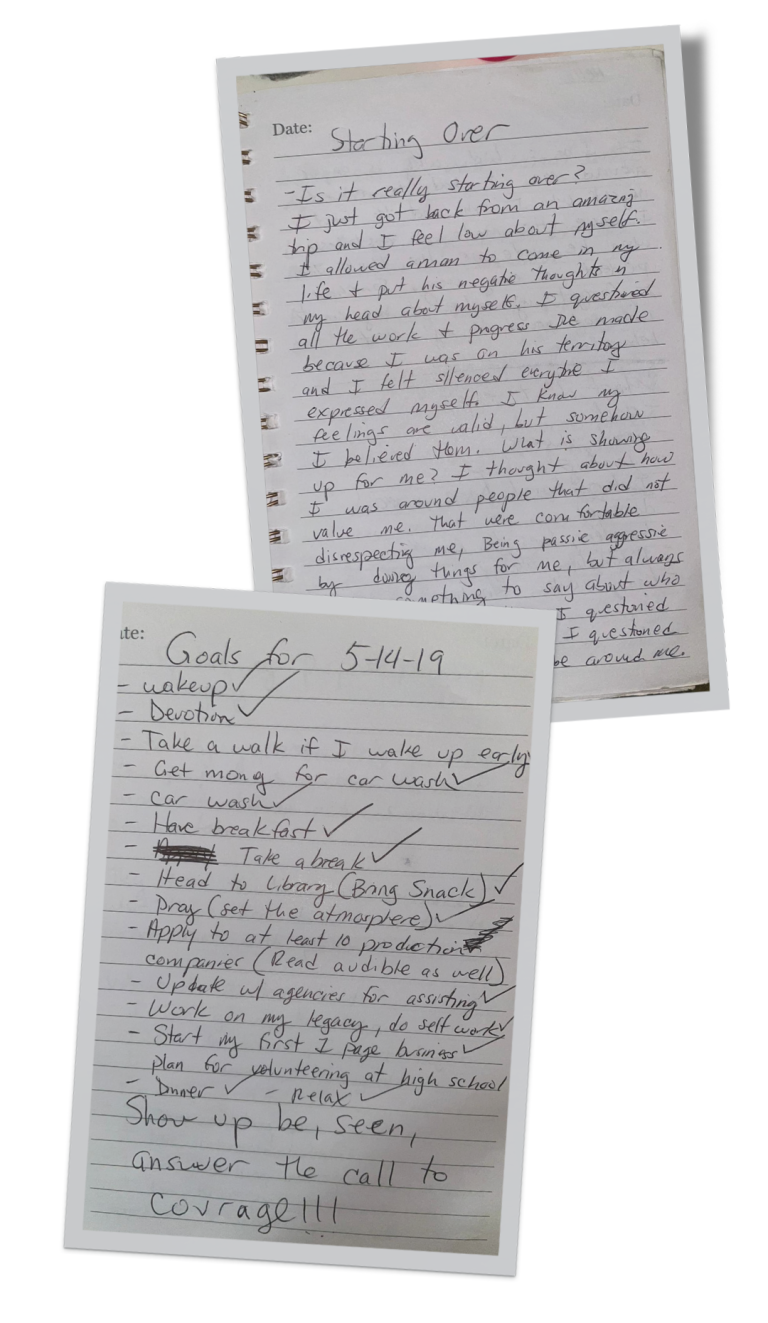 Date: Starting Over
- Is it really starting over?
I just got back from an amazing
trip and I feel low about myself.
I allowed a man to come in my
life + put his negative thoughts n
my head about myself. I questioned
all the work + progress I've made
because I was on his territory
and I felt silenced everytime I
expressed myself. I know my
feelings are valid, but somehow
I believed them. What is showing
up for me? I thought about how
I was around people that did not
value me. That were comfortable
disrespecting me, Being passive aggressive
by doing things for me, but always
something to say about who
I questioned
I questioned
be around me.
te:
Goals for 5-14-19
- wakeup ✓
- Devotion ✓
- Take a walk if I wake up early
- Get money for car wash ✓
- car wash ✓
- Have breakfast ✓
- Take a break ✓
- Head to Library (Bring Snack) ✓
- Pray (set the atmosphere) ✓
- Apply to at least 10 production
companies (Read audible as well)
- Update w/ agencies for assisting ✓
- Work on my legacy, do self work ✓
- Start my first 1 page business ✓
plan for volunteering at high school
- Dinner ✓ - Relax ✓
Show up be, seen,
answer the call to
courage!!!